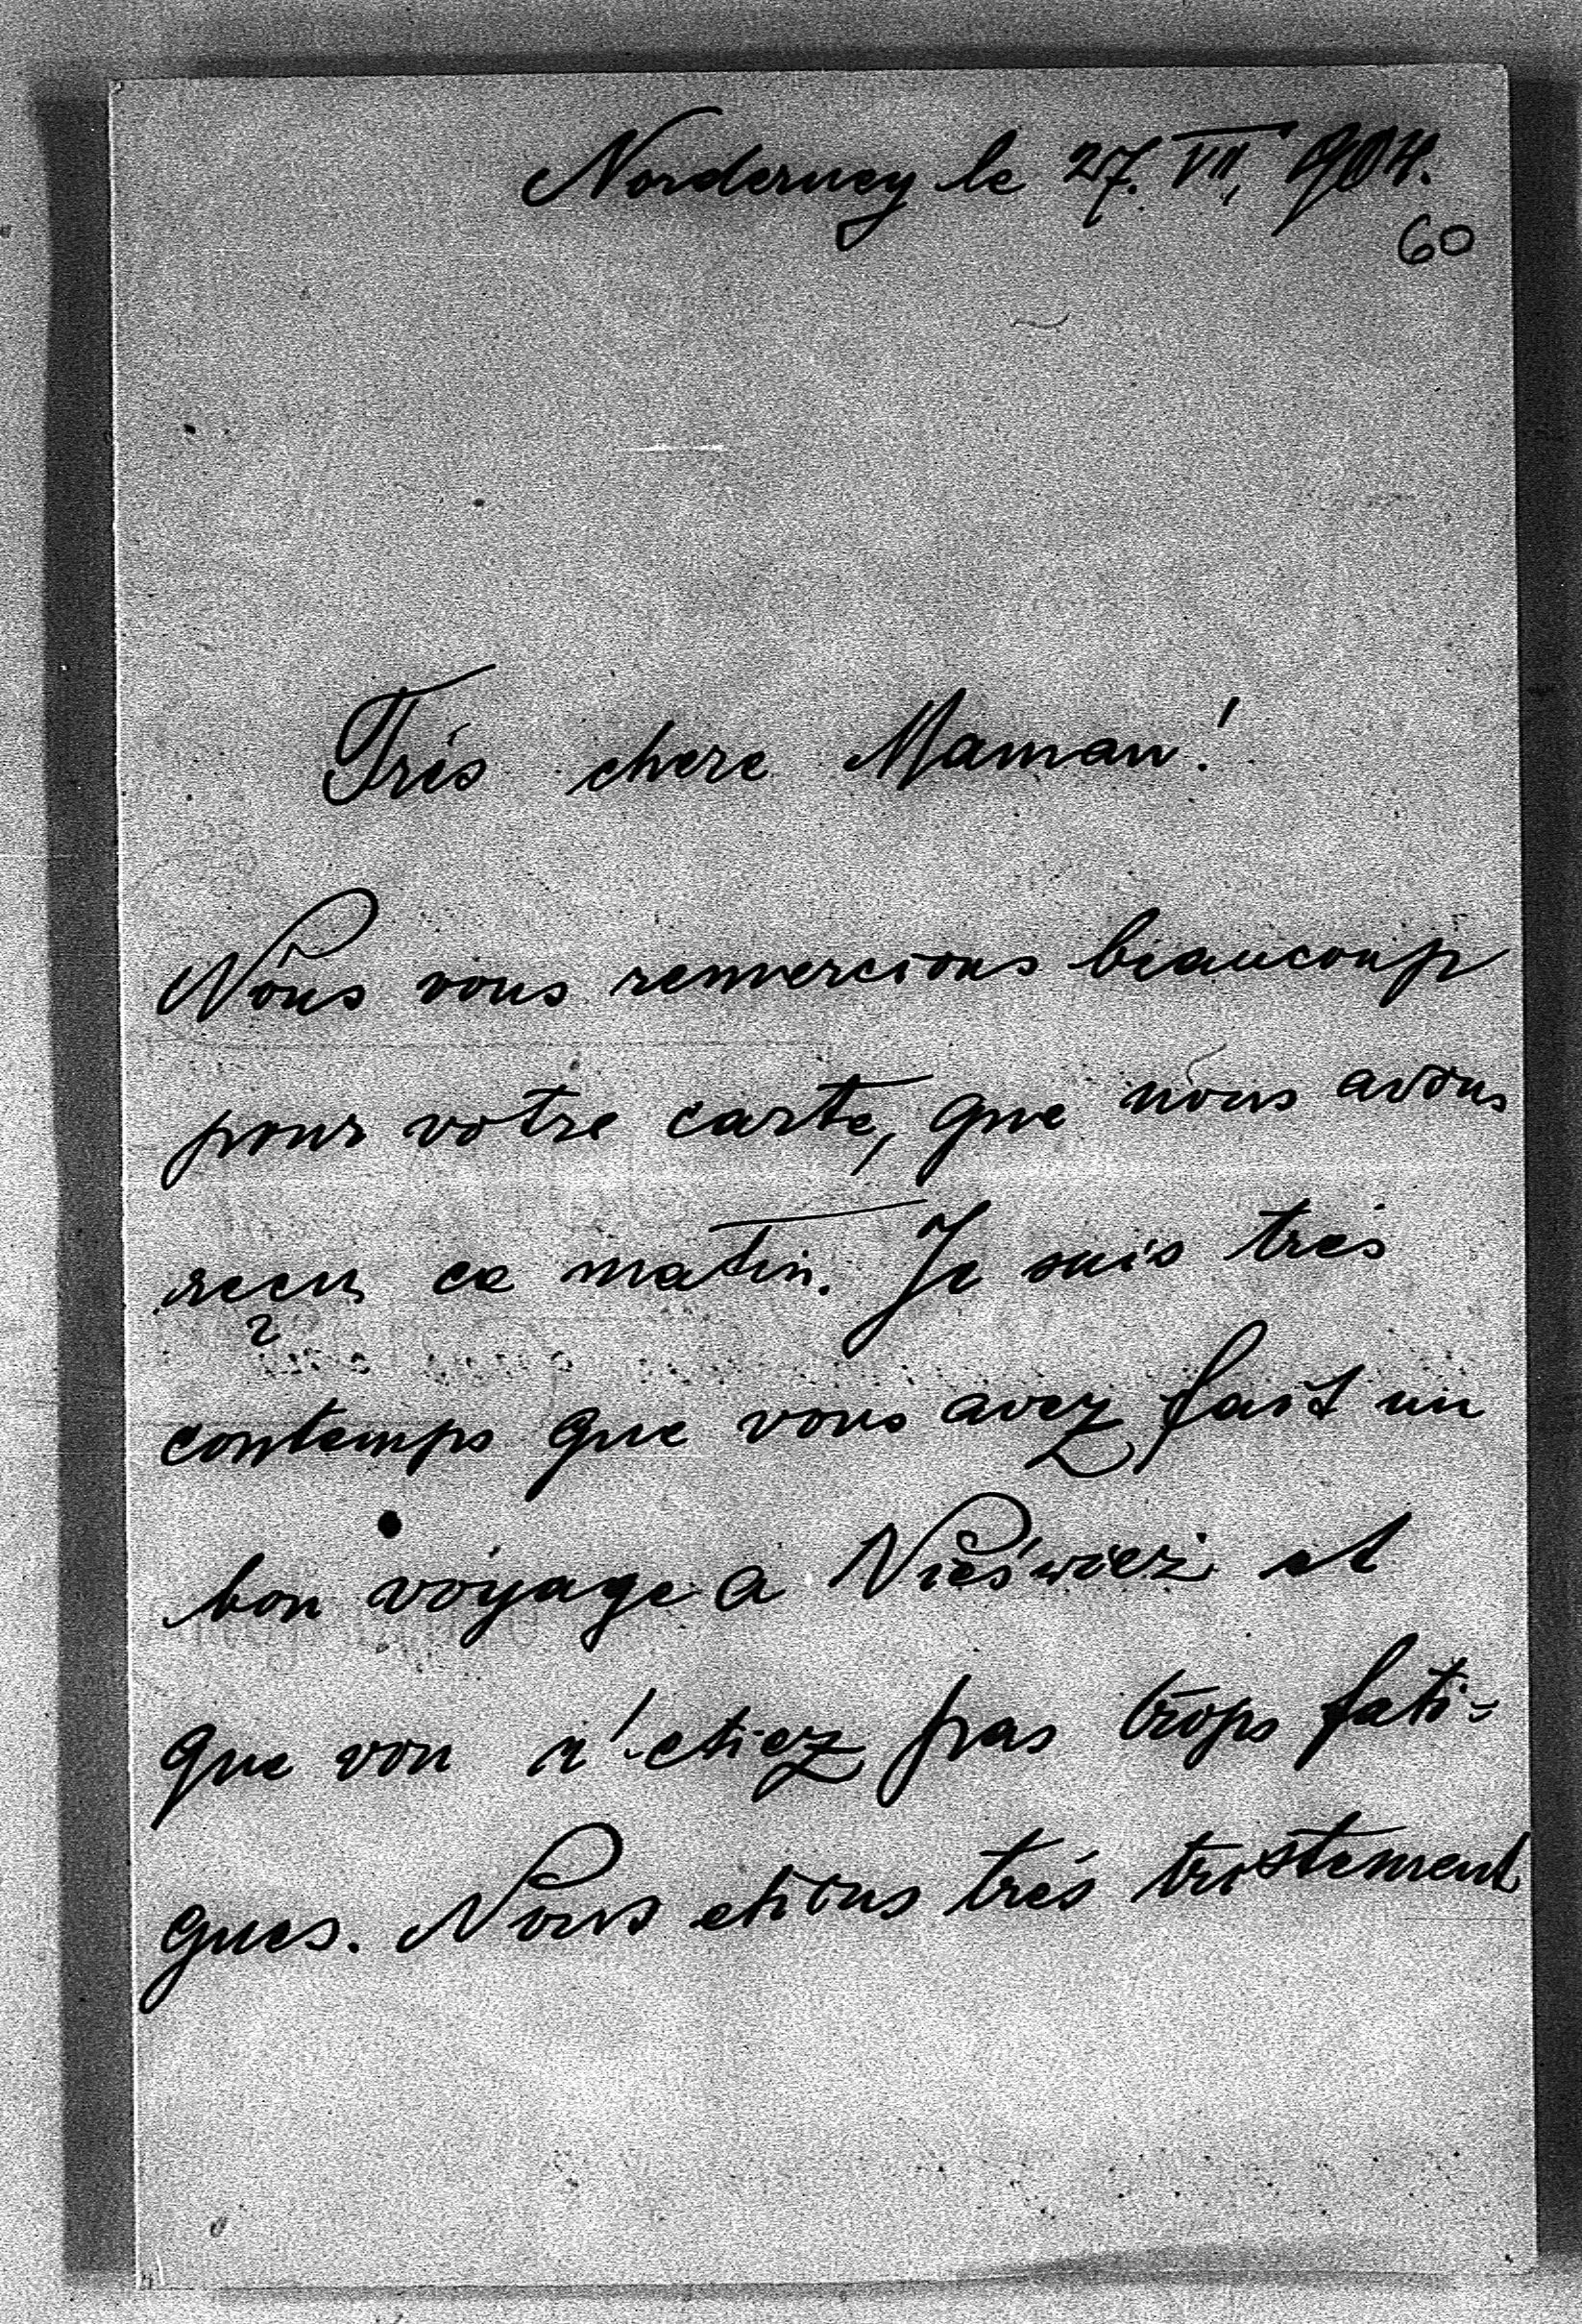 Norderney le 27. VII, 904.
60
Trés chere Maman!
Nous vous remercions beaucoup
pour votre carte, que nous avons
reçus ce matin. Je suis trés
contemps que vous avez fait un
bon voyage a Nieświez et
que von n'etiez pas trops fati-
gues. Nous etions trés tristement